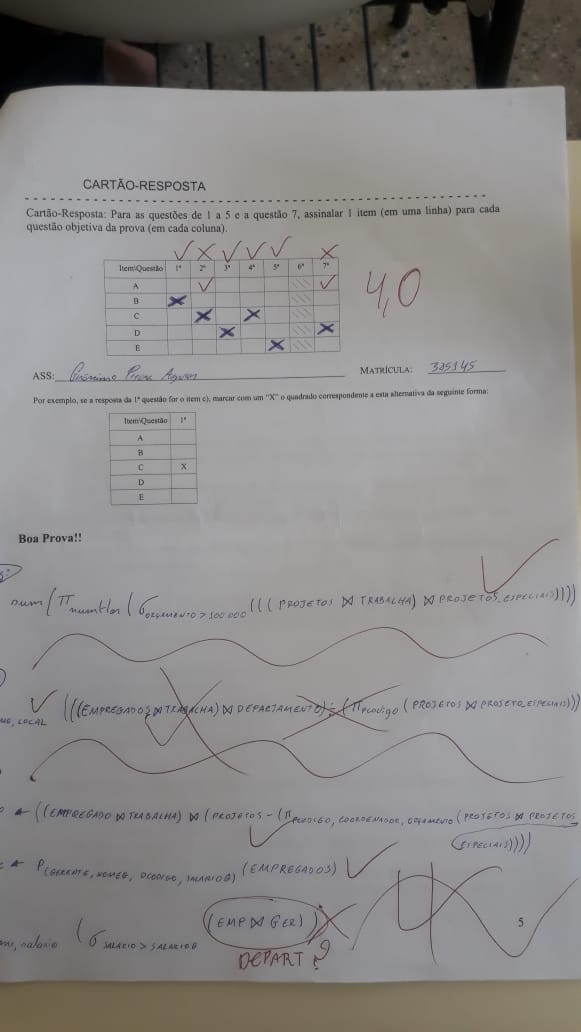 CARTÃO-RESPOSTA
Cartão-Resposta: Para as questões de 1 a 5 e a questão 7, assinalar 1 item (em uma linha) para cada
questão objetiva da prova (em cada coluna).
Item\Questão 1ª 2ª 3ª 4ª 5ª 6ª 7ª
A
B X
C X X
D X X
E X
4,0
ASS: MATRÍCULA: 385145
Por exemplo, se a resposta da 1ª questão for o item c), marcar com um "X" o quadrado correspondente a esta alternativa da seguinte forma:
Item\Questão 1ª
A
B
C X
D
E
Boa Prova!!
num (π numHor (σ ORÇAMENTO > 100 000 (((PROJETOS ⋈ TRABALHA) ⋈ PROJETOS_ESPECIAIS))))
ME, LOCAL (((EMPREGADOS ⋈ TRABALHA) ⋈ DEPARTAMENTO) ÷ (π pcodigo (PROJETOS ⋈ PROJETO_ESPECIAIS)))
← ((EMPREGADO ⋈ TRABALHA) ⋈ (PROJETOS - (π PCODIGO, COORDENADOR, ORÇAMENTO (PROJETOS ⋈ PROJETOS
ESPECIAIS))))
← ρ (GERENTE, NOMEG, DCODIGO, SALARIOG) (EMPREGADOS)
salario (σ SALARIO > SALARIOG (EMP ⋈ GER))
DEPART ?
5